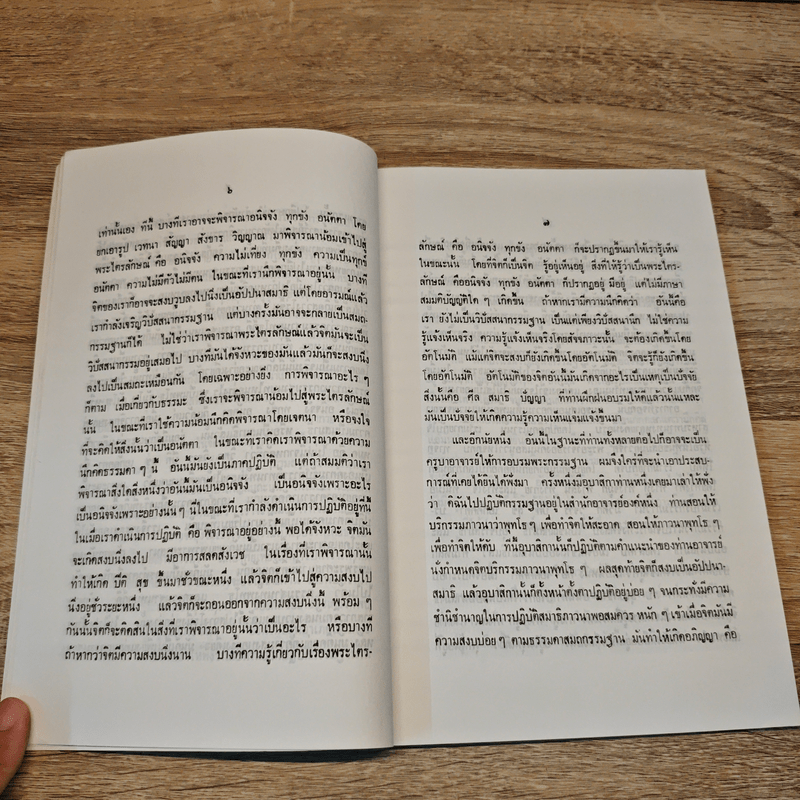 ๖
เท่านั้นเอง ทีนี้ บางทีเราอาจจะพิจารณาอนิจจัง ทุกขัง อนัตตา โดย
ยกเอารูป เวทนา สัญญา สังขาร วิญญาณ มาพิจารณาน้อมเข้าไปสู่
พระไตรลักษณ์ คือ อนิจจัง ความไม่เที่ยง ทุกขัง ความเป็นทุกข์
อนัตตา ความไม่มีตัวไม่มีตน ในขณะที่เรานึกพิจารณาอยู่นั้น บางที
จิตของเราก็อาจจะสงบวูบลงไปนิ่งเป็นอัปปนาสมาธิ แต่โดยอารมณ์แล้ว
เรากำลังเจริญวิปัสสนากรรมฐาน แต่บางครั้งมันอาจจะกลายเป็นสมถะ
กรรมฐานก็ได้ ไม่ใช่ว่าเราพิจารณาพระไตรลักษณ์แล้วจิตมันจะเป็น
วิปัสสนากรรมอยู่เสมอไป บางทีมันได้จังหวะของมันแล้วมันก็จะสงบนิ่ง
ลงไปเป็นสมถะเหมือนกัน โดยเฉพาะอย่างยิ่ง การพิจารณาอะไร ๆ
ก็ตาม เมื่อเกี่ยวกับธรรมะ ซึ่งเราจะพิจารณาน้อมไปสู่พระไตรลักษณ์
นั้น ในขณะที่เราใช้ความน้อมนึกคิดพิจารณาโดยเจตนา หรือจงใจ
ที่จะคิดให้สิ่งนั้นว่าเป็นอนัตตา ในขณะที่เราคิดเราพิจารณาด้วยความ
นึกคิดธรรมดา ๆ นี้ อันนี้มันยังเป็นภาคปฏิบัติ แต่ถ้าสมมติว่าเรา
พิจารณาสิ่งใดสิ่งหนึ่งว่าอันนี้มันเป็นอนิจจัง เป็นอนิจจังเพราะอะไร
เป็นอนิจจังเพราะอย่างนั้น ๆ นี่ในขณะที่เรากำลังดำเนินการปฏิบัติอยู่ที่นี้
ในเมื่อเราดำเนินการปฏิบัติ คือ พิจารณาอยู่อย่างนี้ พอได้จังหวะ จิตมัน
จะเกิดสงบนิ่งลงไป มีอาการสลดสังเวช ในเรื่องที่เราพิจารณานั้น
ทำให้เกิด ปีติ สุข ขึ้นมาชั่วขณะหนึ่ง แล้วจิตก็เข้าไปสู่ความสงบไป
นิ่งอยู่ชั่วระยะหนึ่ง แล้วจิตก็จะถอนออกจากความสงบนิ่งนี้ พร้อม ๆ
กันนั้นจิตก็จะตัดสินในสิ่งที่เราพิจารณาอยู่นั้นว่าเป็นอะไร หรือบางที
ถ้าหากว่าจิตมีความสงบนิ่งนาน บางทีความรู้เกี่ยวกับเรื่องพระไตร-
๗
ลักษณ์ คือ อนิจจัง ทุกขัง อนัตตา ก็จะปรากฏขึ้นมาให้เรารู้เห็น
ในขณะนั้น โดยที่จิตก็เป็นจิต รู้อยู่เห็นอยู่ สิ่งที่ให้รู้ว่าเป็นพระไตร-
ลักษณ์ คืออนิจจัง ทุกขัง อนัตตา ก็ปรากฏอยู่ มีอยู่ แต่ไม่มีภาษา
สมมติบัญญัติใด ๆ เกิดขึ้น ถ้าหากเรามีความนึกคิดว่า อันนี้คือ
เรา ยังไม่เป็นวิปัสสนากรรมฐาน เป็นแต่เพียงวิปัสสนานึก ไม่ใช่ความ
รู้แจ้งเห็นจริง ความรู้แจ้งเห็นจริงโดยสัจจภาวะนั้น จะต้องเกิดขึ้นโดย
อัตโนมัติ แม้แต่จิตจะสงบก็ยังเกิดขึ้นโดยอัตโนมัติ จิตจะรู้ก็ยังเกิดขึ้น
โดยอัตโนมัติ อัตโนมัติของจิตอันนี้มันเกิดจากอะไรเป็นเหตุเป็นปัจจัย
สิ่งนั้นคือ ศีล สมาธิ ปัญญา ที่ท่านฝึกฝนอบรมให้ดีแล้วนั้นแหละ
มันเป็นปัจจัยให้เกิดความรู้ความเห็นแจ่มแจ้งขึ้นมา
และอีกนัยหนึ่ง อันนี้ในฐานะที่ท่านทั้งหลายต่อไปก็อาจจะเป็น
ครูบาอาจารย์ให้การอบรมพระกรรมฐาน ผมจึงใคร่ที่จะนำเอาประสบ-
การณ์ที่เคยได้ยินได้ฟังมา ครั้งหนึ่งมีอุบาสกาท่านหนึ่งเคยมาเล่าให้ฟัง
ว่า ดิฉันไปปฏิบัติกรรมฐานอยู่ในสำนักอาจารย์องค์หนึ่ง ท่านสอนให้
บริกรรมภาวนาว่าพุทโธ ๆ เพื่อทำจิตให้สะอาด สอนให้ภาวนาพุทโธ ๆ
เพื่อทำจิตให้ดับ ทีนี้อุบาสิกานั้นก็ปฏิบัติตามคำแนะนำของท่านอาจารย์
นั่งกำหนดจิตบริกรรมภาวนาพุทโธ ๆ ผลสุดท้ายจิตก็สงบเป็นอัปปนา-
สมาธิ แล้วอุบาสิกานั้นก็ตั้งหน้าตั้งตาปฏิบัติอยู่บ่อย ๆ จนกระทั่งมีความ
ชำนิชำนาญในการปฏิบัติสมาธิภาวนาพอสมควร หนัก ๆ เข้าเมื่อจิตมันมี
ความสงบบ่อย ๆ ตามธรรมดาสมถกรรมฐาน มันทำให้เกิดอภิญญา คือ